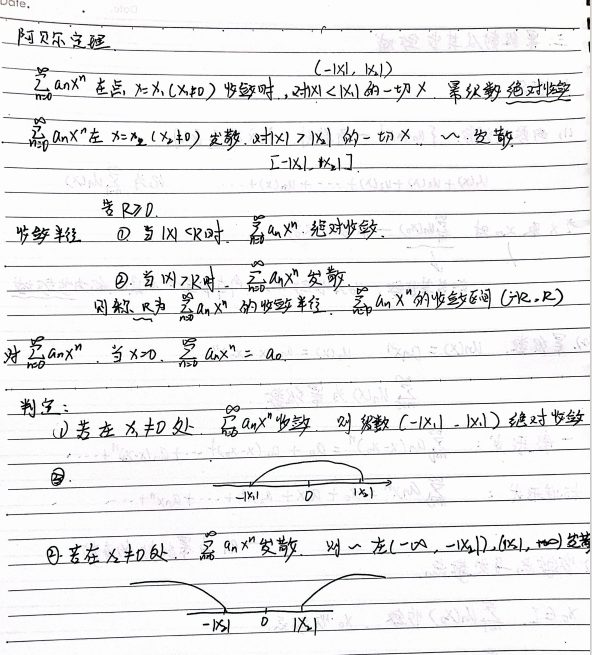 Date.
阿贝尔定理
(-|x₁|, |x₁|)
∑_{n=0}^{∞} aₙxⁿ 在点 x=x₁(x₁≠0) 收敛时,对|x|<|x₁|的一切x 幂级数绝对收敛
∑_{n=0}^{∞} aₙxⁿ在 x=x₂(x₂≠0) 发散.对|x|>|x₂| 的一切x, ~ 发散.
[-|x₂|, |x₂|].
若R≥0.
收敛半径 ① 当|x|<R时. ∑_{n=0}^{∞} aₙxⁿ 绝对收敛.
②. 当|x|>R时. ∑_{n=0}^{∞} aₙxⁿ 发散.
则称 R为 ∑_{n=0}^{∞} aₙxⁿ 的收敛半径. ∑_{n=0}^{∞} aₙxⁿ的收敛区间 (-R, R)
对 ∑_{n=0}^{∞} aₙxⁿ. 当 x=0. ∑_{n=0}^{∞} aₙxⁿ = a₀.
判定:
(1) 若在 x₁≠0 处. ∑_{n=0}^{∞} aₙxⁿ收敛 则 级数 (-|x₁|, |x₁|) 绝对收敛
②.
-|x₁| 0 |x₁|
②. 若在 x₂≠0处. ∑_{n=0}^{∞} aₙxⁿ发散. 则 ~ 在(-∞, -|x₂|), (|x₂|, +∞) 发散
-|x₂| 0 |x₂|